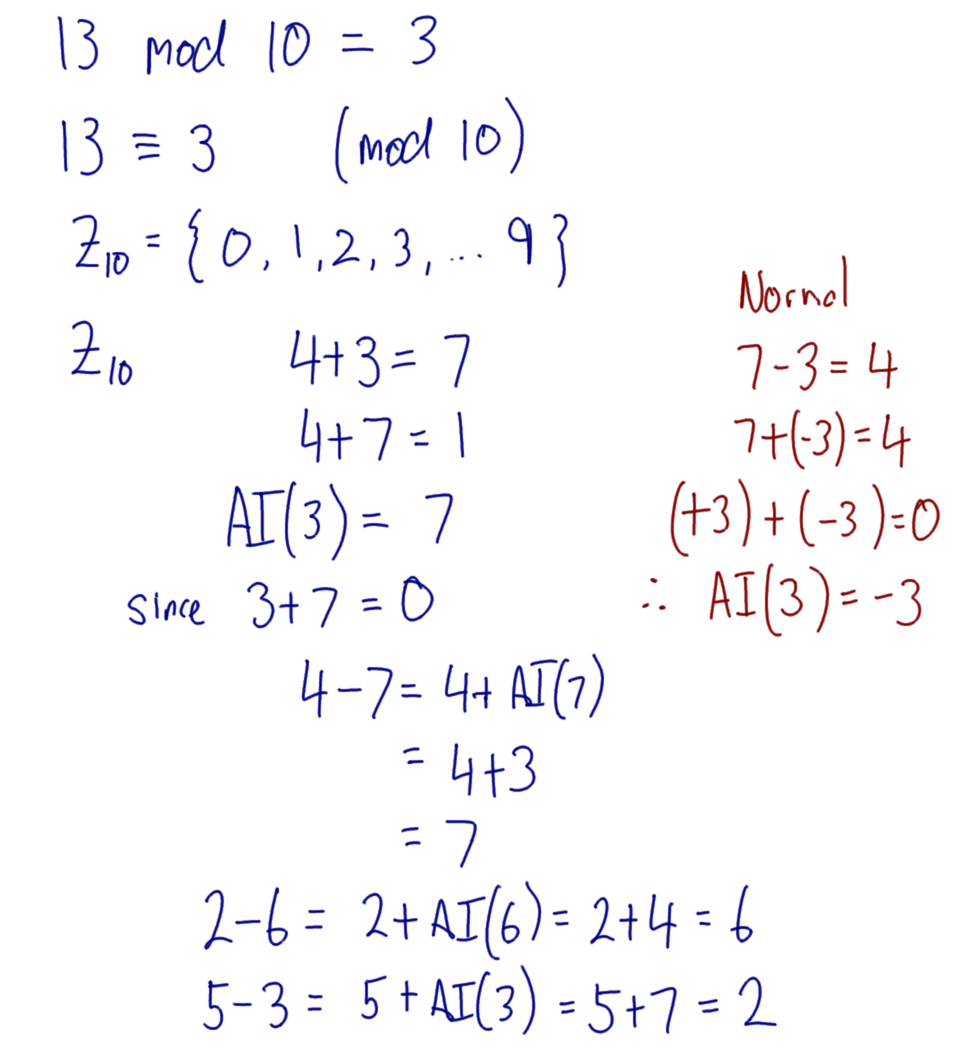 13 mod 10 = 3
13 ≡ 3 (mod 10)
Z₁₀ = {0, 1, 2, 3, ... 9}
Z₁₀ 4+3 = 7
4+7 = 1
AI(3) = 7
since 3+7 = 0
4-7 = 4+ AI(7)
= 4+3
= 7
2-6 = 2+AI(6) = 2+4 = 6
5-3 = 5+AI(3) = 5+7 = 2
Normal
7-3 = 4
7+(-3) = 4
(+3) + (-3) = 0
∴ AI(3) = -3